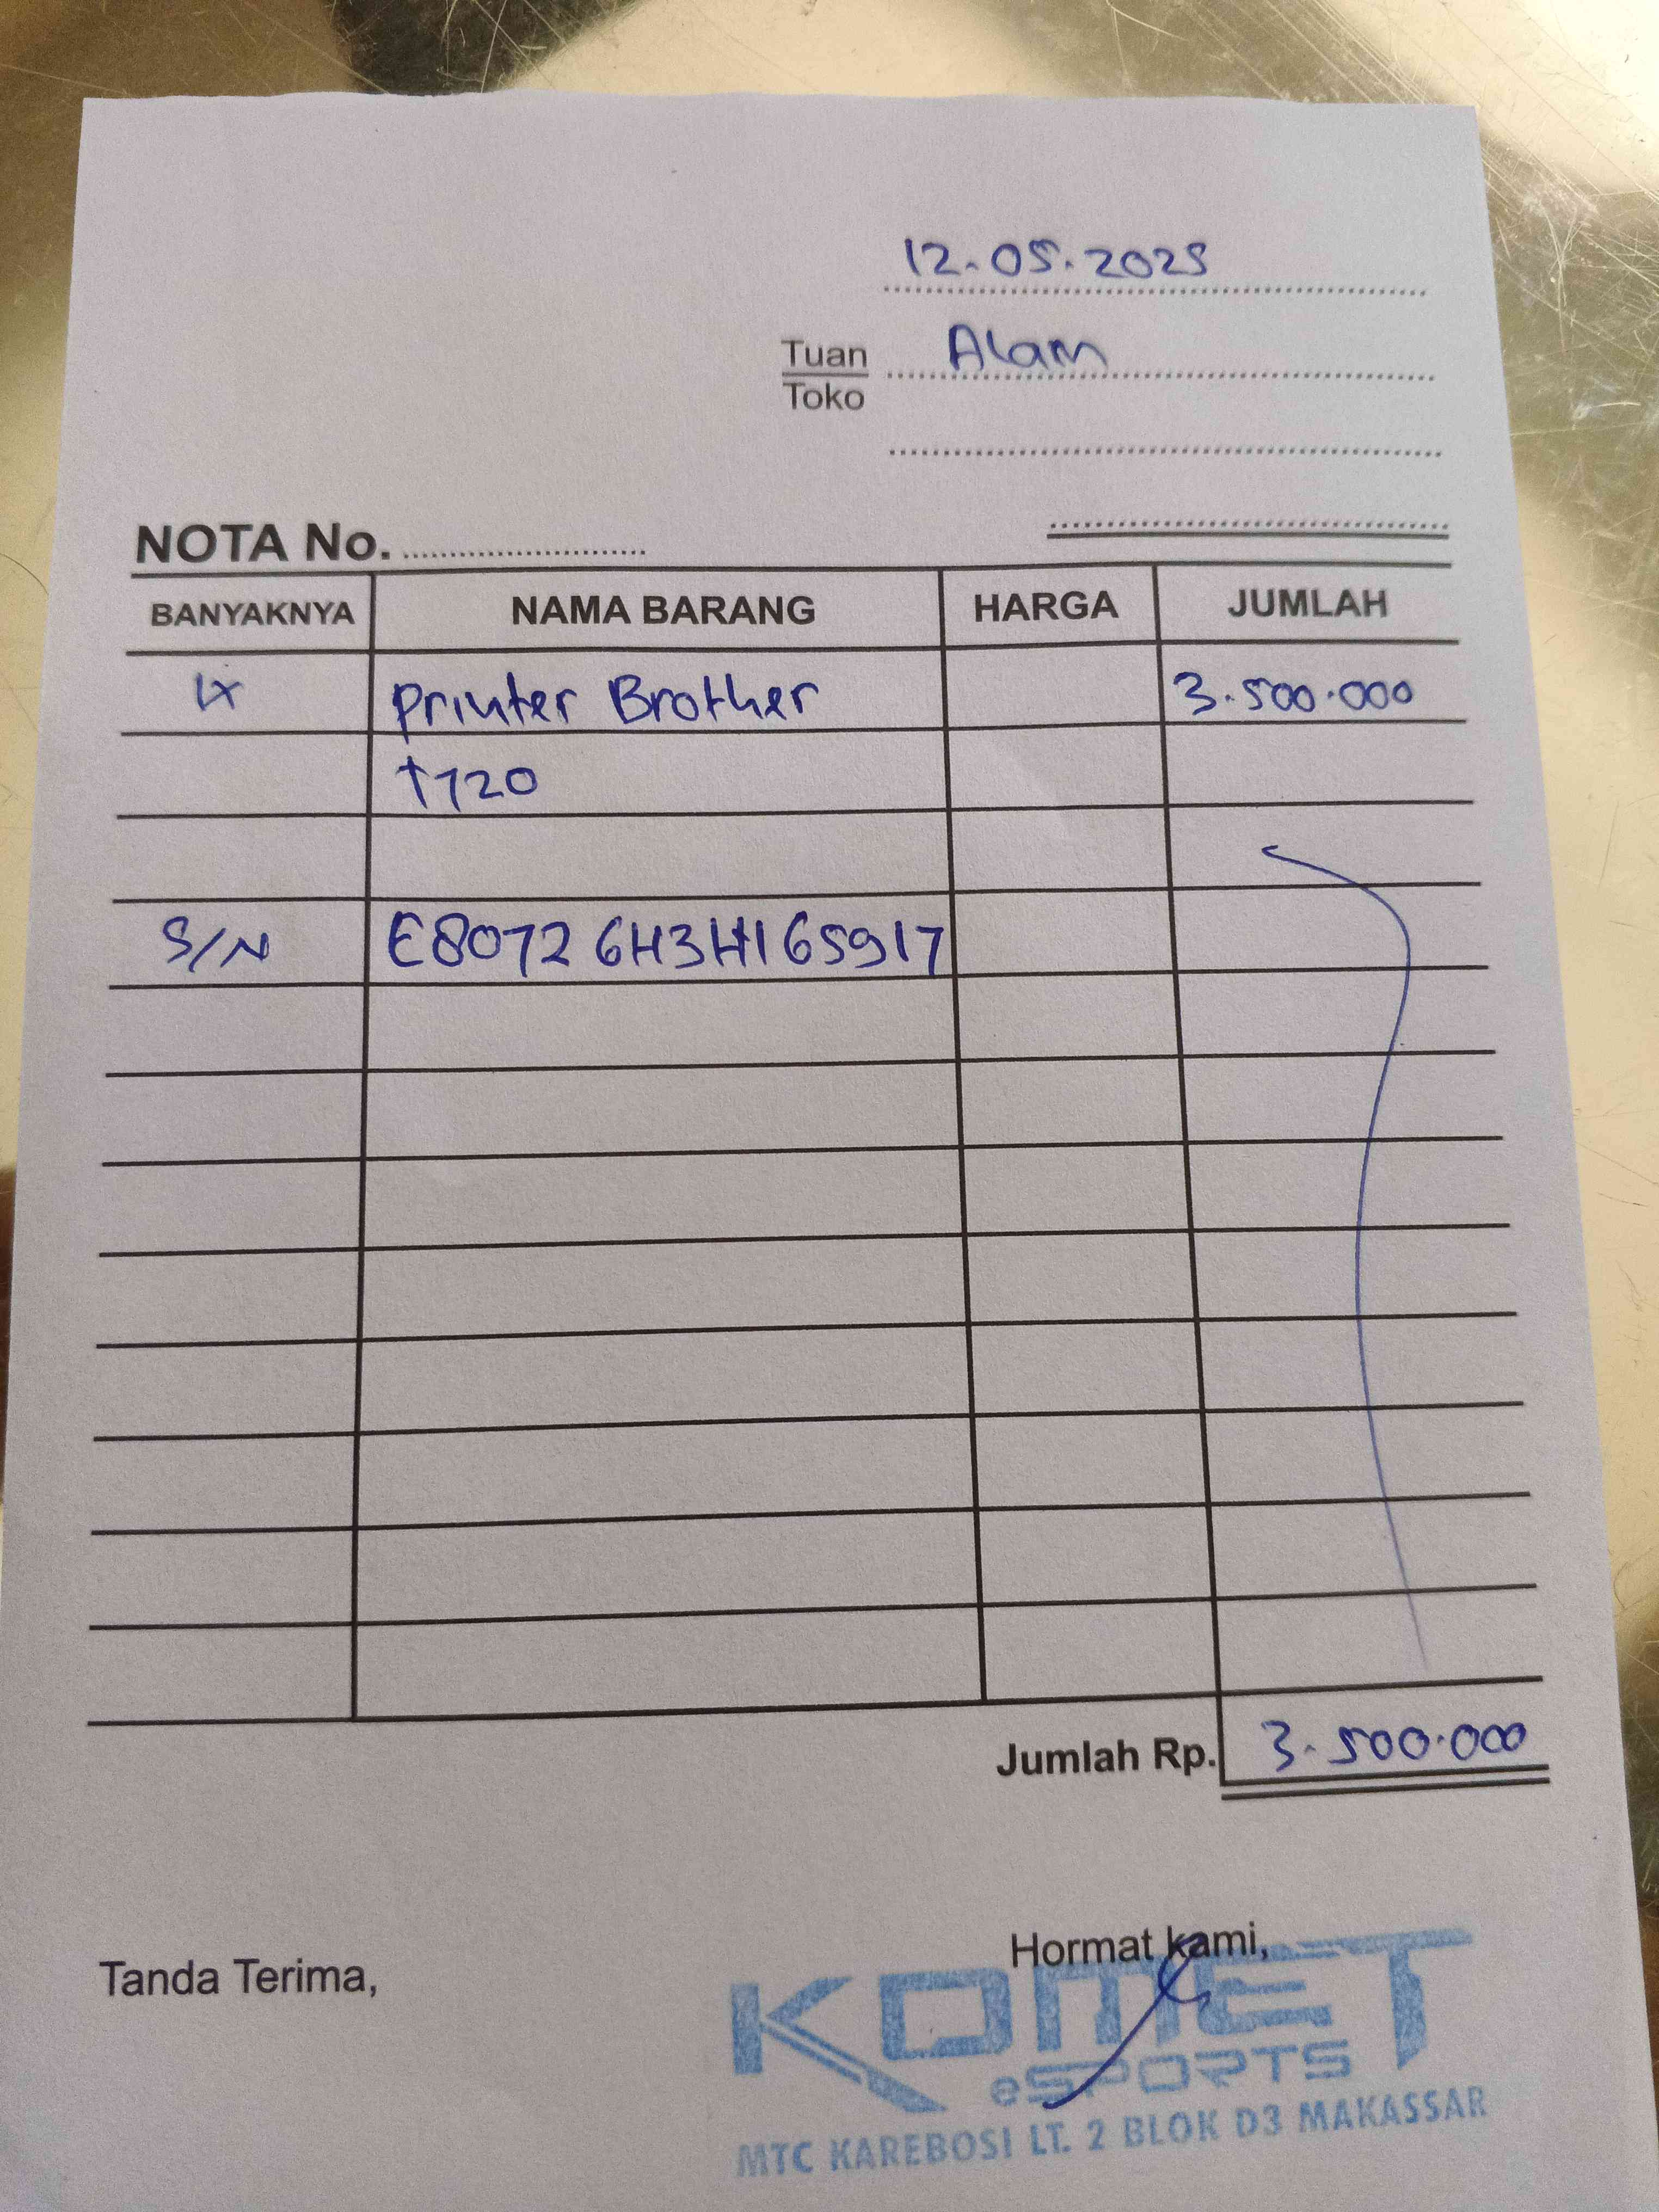 12.05.2025
Tuan Alam
Toko
NOTA No.
BANYAKNYA NAMA BARANG HARGA JUMLAH
1x Printer Brother 3.500.000
T720
S/N E80726H3H165917
Jumlah Rp. 3.500.000
Tanda Terima, Hormat kami,
KOMET
eSPORTS
MTC KAREBOSI LT. 2 BLOK D3 MAKASSAR